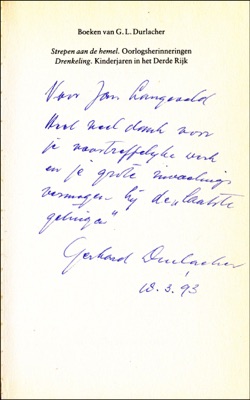 Boeken van G. L. Durlacher
Strepen aan de hemel. Oorlogsherinneringen
Drenkeling. Kinderjaren in het Derde Rijk
Voor Jan Langeveld
Heel veel dank voor
je voortreffelijke werk
en je grote invoelings
vermogen bij de „laatste
getuigen"
Gerhard Durlacher
18.3.93